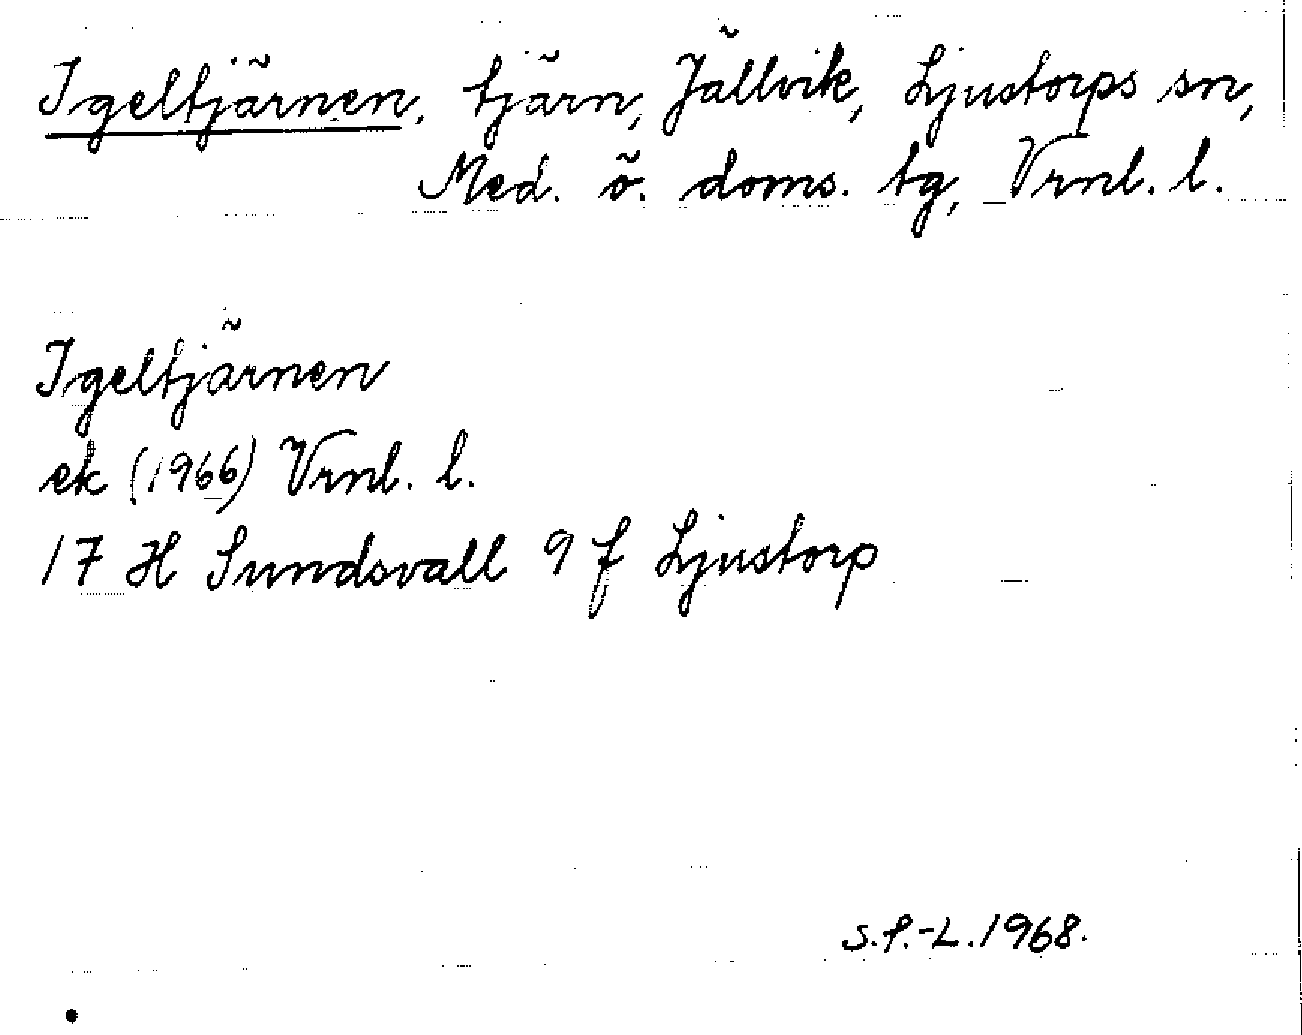 Igeltjärnen, tjärn, Jällvik, Ljustorps sn,
Med. ö. doms. tg, Vrnl. l.
Igeltjärnen
ek (1966) Vrnl. l.
17 H Sundsvall 9 f Ljustorp
S.P.-L. 1968.